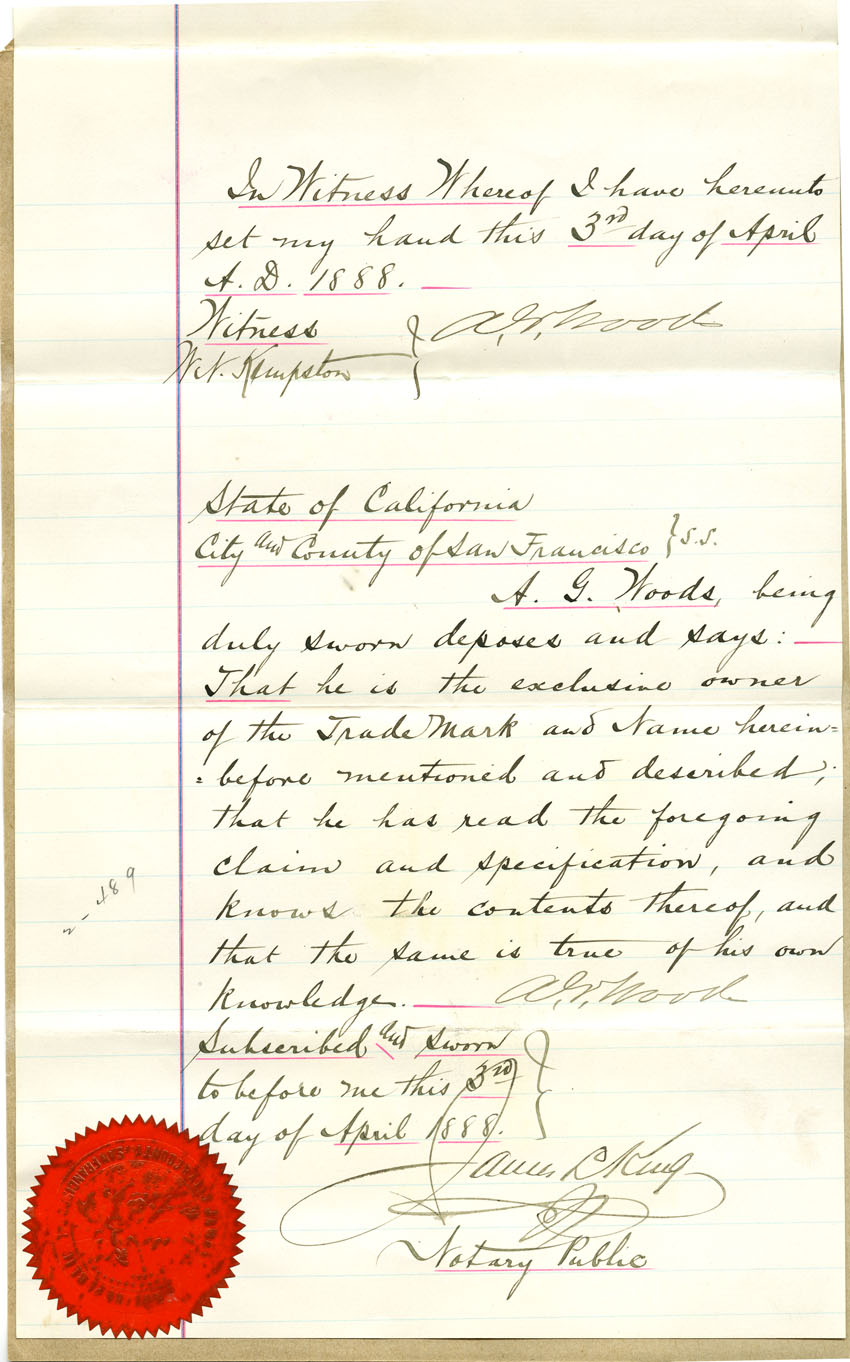 In Witness Whereof I have hereunto
set my hand this 3rd day of April
A. D. 1888.
Witness } A. G. Woods
W. N. Kempston
State of California
City and County of San Francisco } S.S.
A. G. Woods, being
duly sworn deposes and says:
That he is the exclusive owner
of the Trade Mark and Name herein=
=before mentioned and described;
that he has read the foregoing
claim and specification, and
knows the contents thereof, and
that the same is true of his own
knowledge. A. G. Woods
Subscribed and sworn
to before me this 3rd
day of April 1888.
James L. King
Notary Public
2-489